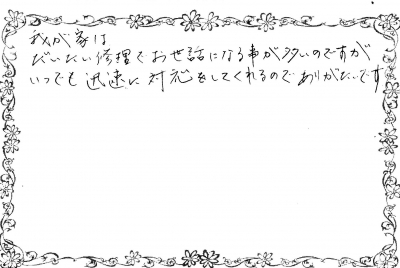 我が家は
だいたい修理でお世話になる事が多いのですが
いつでも迅速に対応をしてくれるのでありがたいです